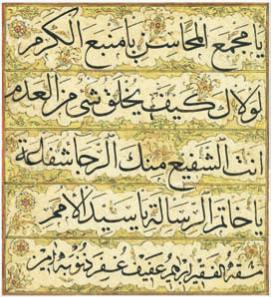 يا مجمع المحاسن يا منبع الكرم
لولاك كيف يخلق شئ من العدم
انت الشفيع منك الرجا شفاعة
يا خاتم الرسالة يا سيد الامم
مشقه الفقير ابرهيم عفيف غفر ذنوبه